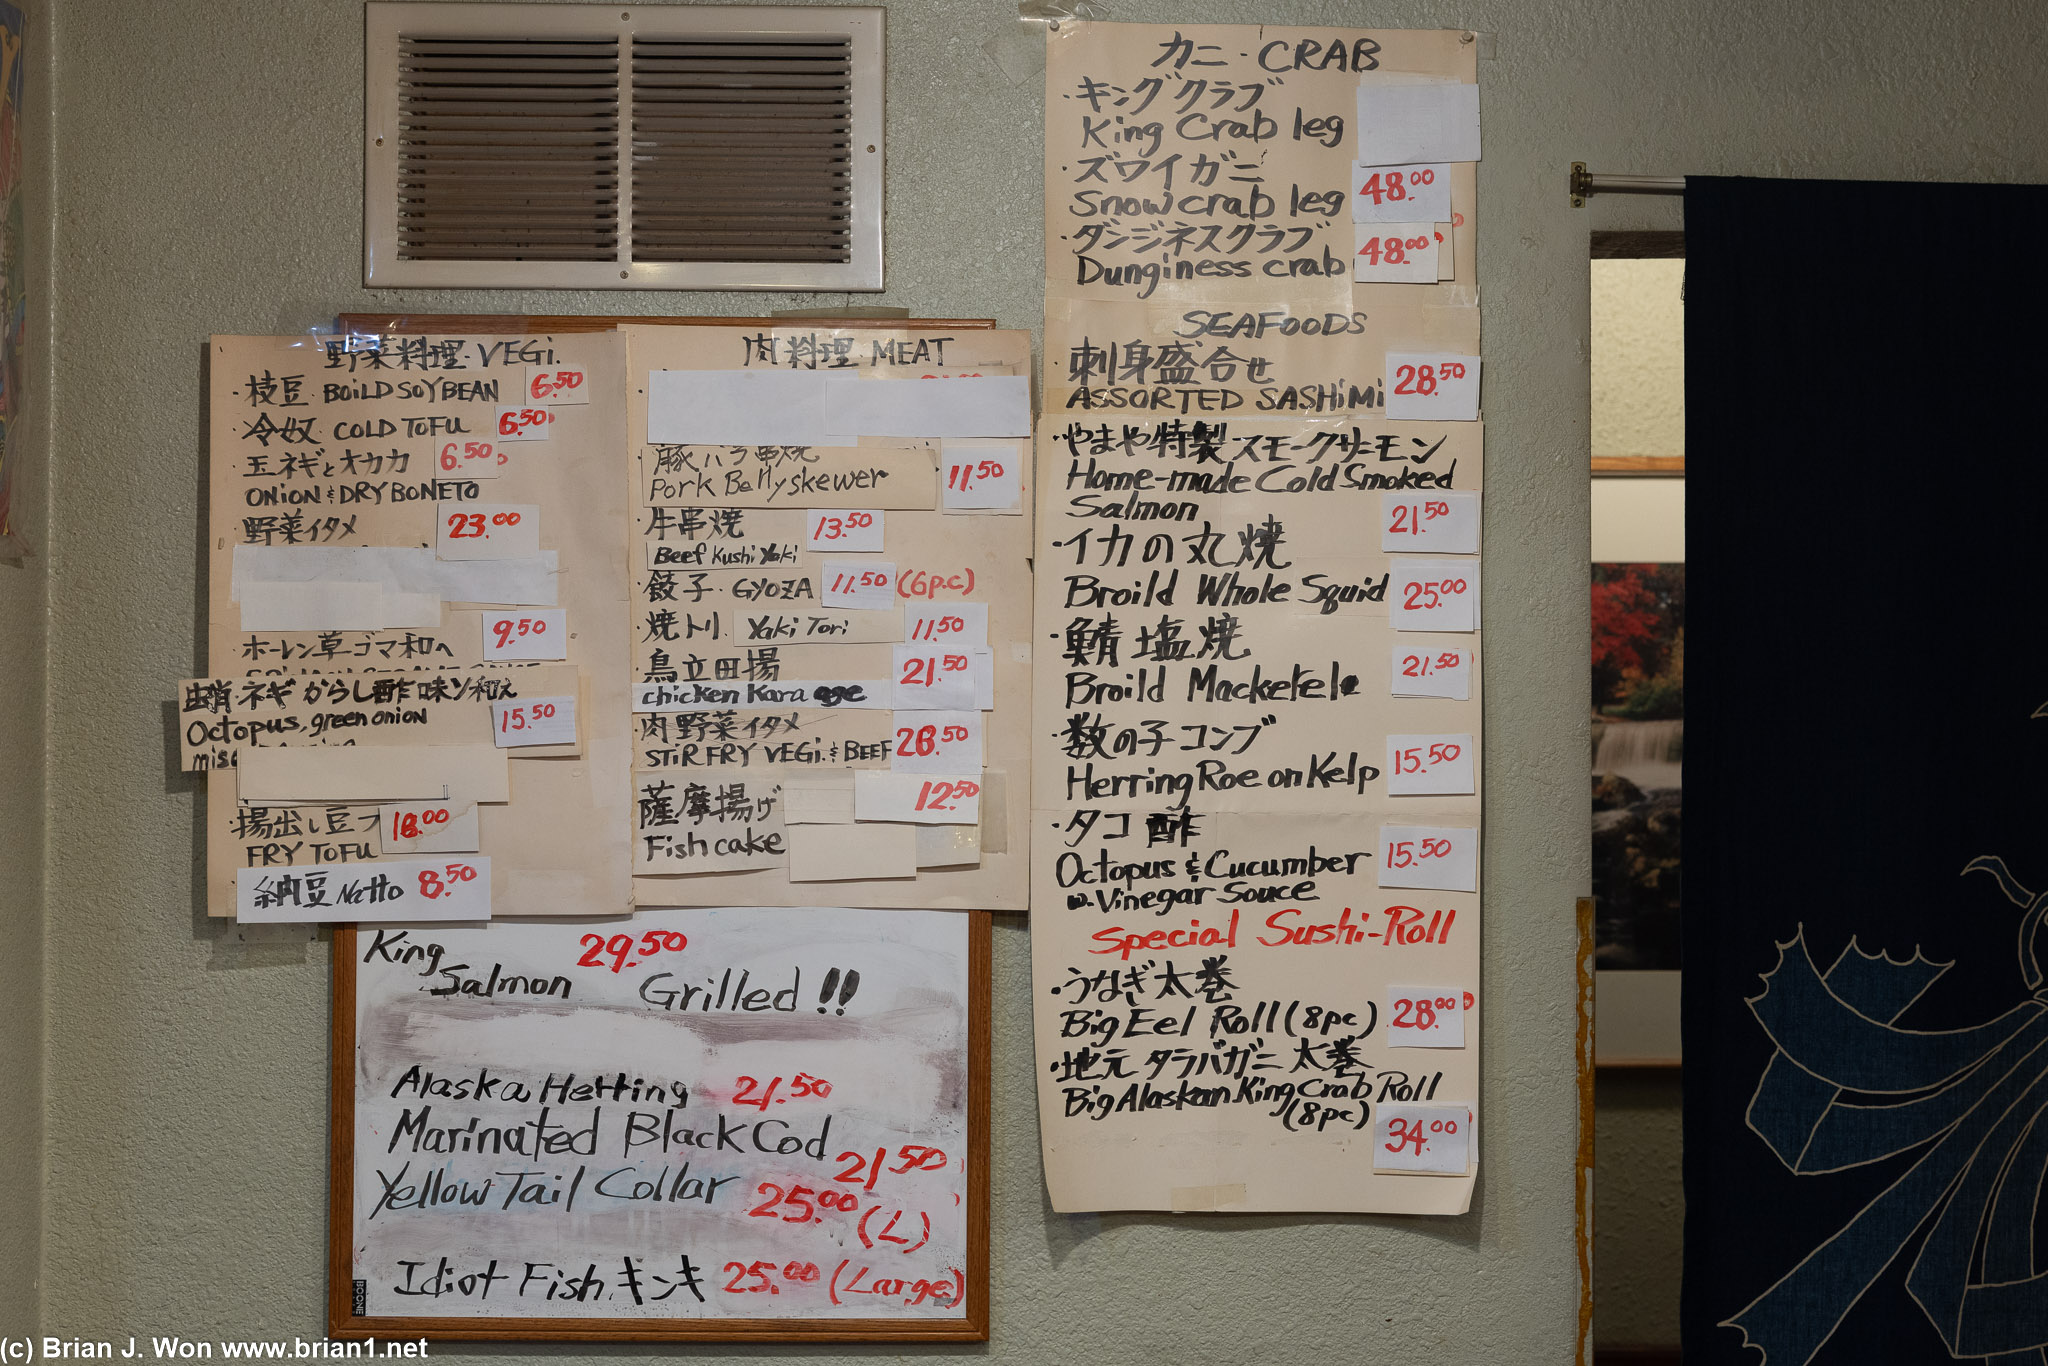 野菜料理・VEGi.
・枝豆 BOiLD SOYBEAN 6.50
・冷奴 COLD TOFU 6.50
・玉ネギとオカカ 6.50
ONiON & DRY BONETO
・野菜イタメ 23.00
・ホーレン草ゴマ和へ 9.50
蛸・ネギからし酢味ソ和え
Octopus, green onion 15.50
・揚出し豆フ 18.00
FRY TOFU
納豆 Natto 8.50
肉料理・MEAT
豚バラ串焼
Pork Belly skewer 11.50
・牛串焼 13.50
Beef Kushi Yaki
・餃子・GYOZA 11.50 (6p.c)
・焼トリ. Yaki Tori 11.50
・鳥立田揚 21.50
chicken Kara age
・肉野菜イタメ
STiR FRY VEGi. & BEEF 28.50
・薩摩揚げ 12.50
Fish cake
King
Salmon 29.50 Grilled!!
Alaska Herring 21.50
Marinated Black Cod
21.50
Yellow Tail Collar 25.00 (L)
Idiot Fish キンキ 25.00 (Large)
BOONE
カニ・CRAB
・キングクラブ
King Crab leg
・ズワイガニ
Snow crab leg 48.00
・ダンジネスクラブ
Dunginess crab 48.00
SEAFOODS
・刺身盛合せ
ASSORTED SASHiMi 28.50
・やまや特製スモークサーモン
Home-made Cold Smoked
Salmon 21.50
・イカの丸焼
Broild Whole Squid 25.00
・鯖塩焼
Broild Mackerel 21.50
・数の子コンブ
Herring Roe on Kelp 15.50
・タコ酢
Octopus & Cucumber 15.50
w. Vinegar Souce
Special Sushi-Roll
・うなぎ太巻
Big Eel Roll (8pc) 28.00
・地元タラバガニ太巻
Big Alaskan King Crab Roll
(8pc) 34.00
(c) Brian J. Won www.brian1.net